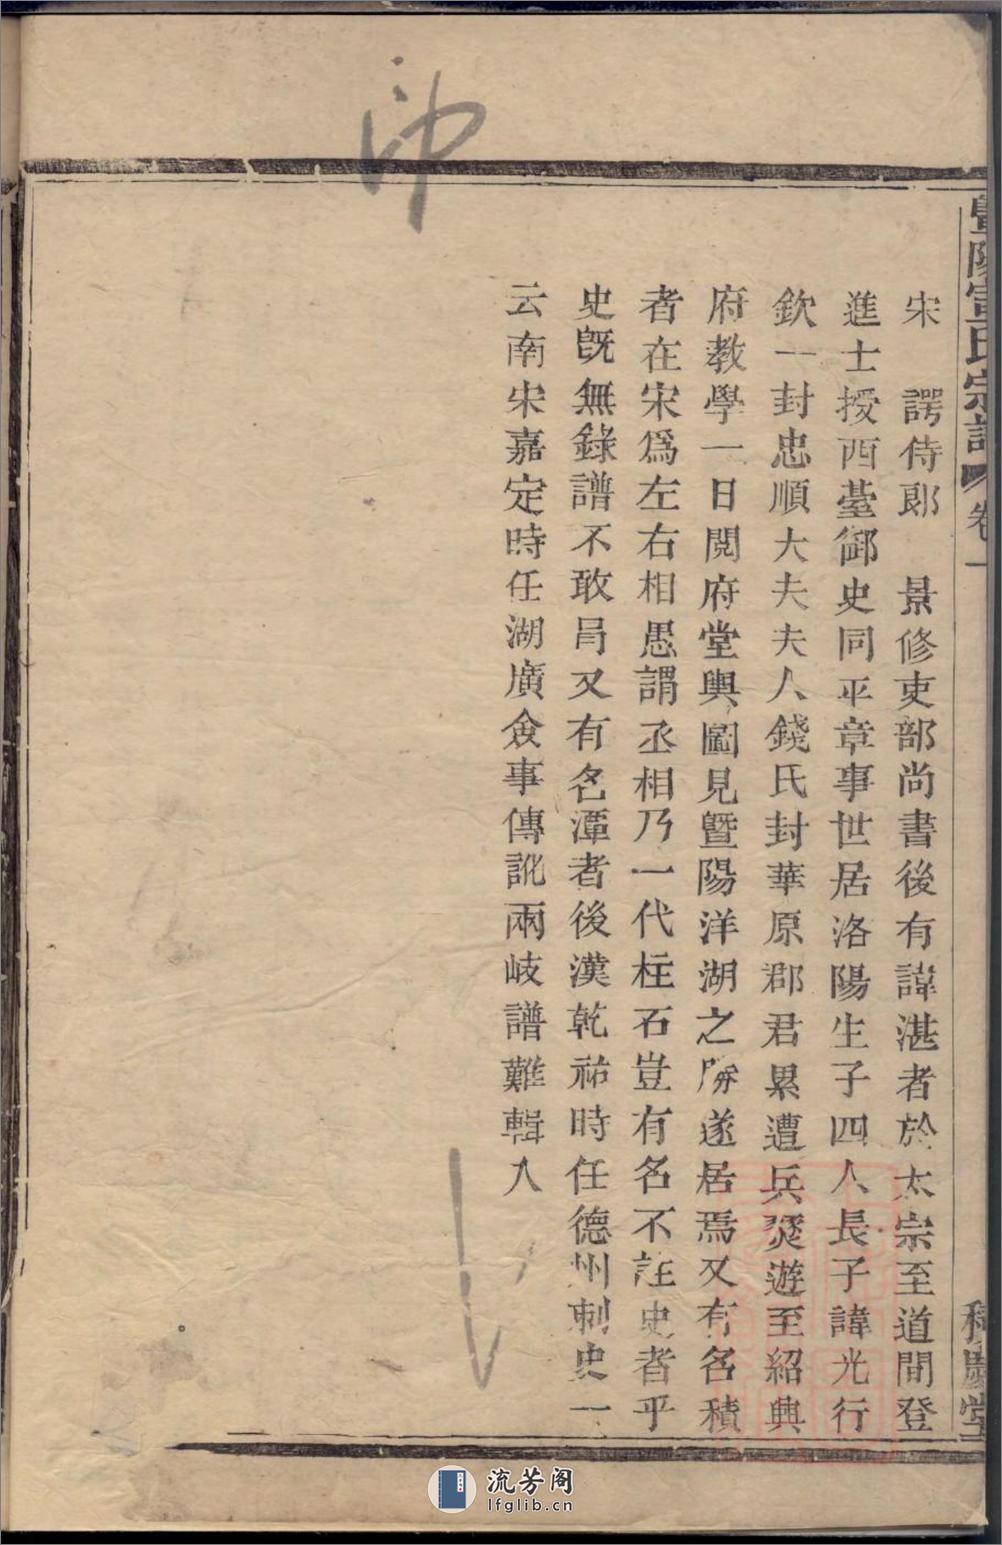 暨陽宣氏宗譜 卷一 積慶堂
宋 諤侍郎 景修吏部尚書後有諱湛者於太宗至道間登
進士授西臺御史同平章事世居洛陽生子四人長子諱光行
欽一封忠順大夫夫人錢氏封華原郡君累遭兵燹遊至紹興
府教學一日閱府堂輿圖見暨陽洋湖之勝遂居焉又有名積
者在宋爲左右相愚謂丞相乃一代柱石豈有名不註史者乎
史旣無錄譜不敢冐又有名潭者後漢乾祐時任德州刺史一
云南宋嘉定時任湖廣僉事傳訛兩岐譜難輯入
流芳阁
lfglib.cn